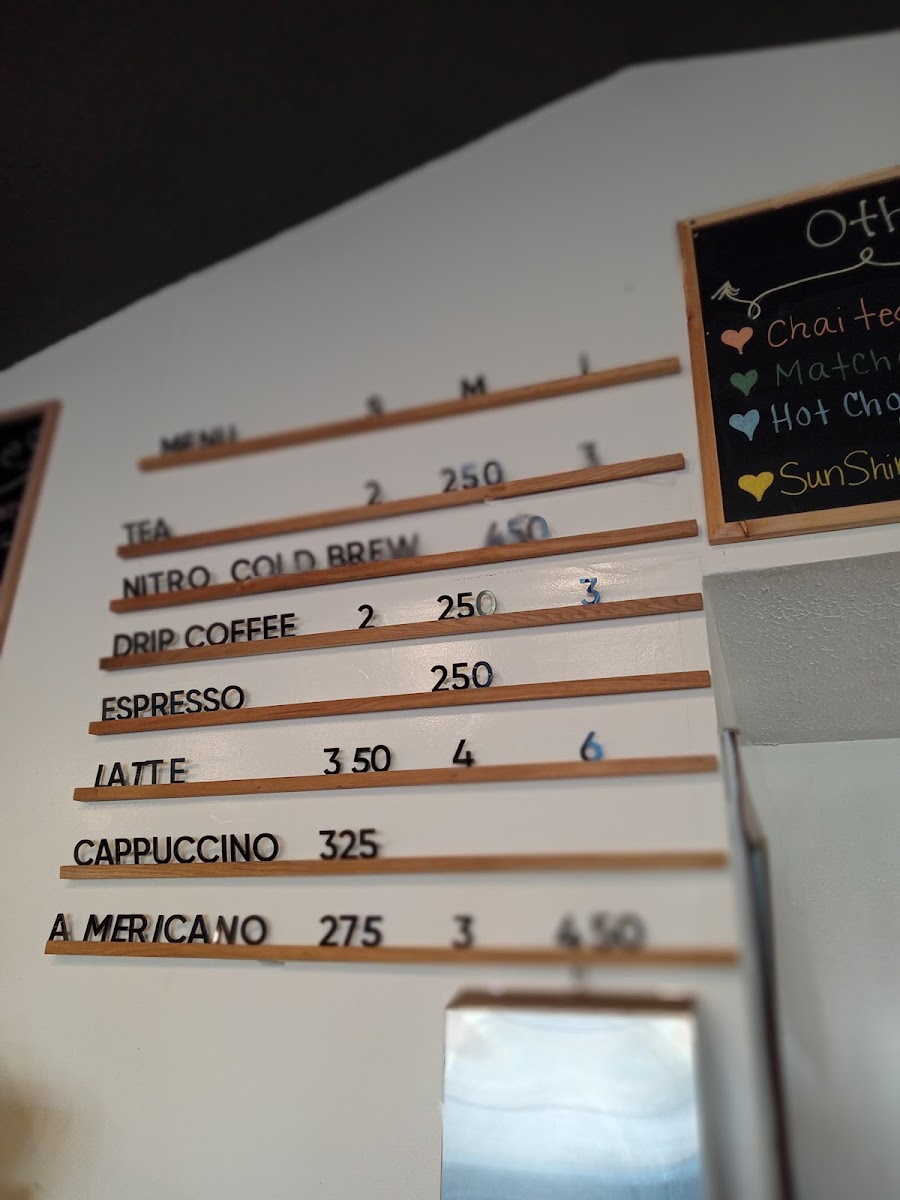 MENU S M L
TEA 2 250 3
NITRO COLD BREW 450
DRIP COFFEE 2 250 3
ESPRESSO 250
LATTE 3 50 4 6
CAPPUCCINO 325
A MERICANO 275 3 4 50
Oth
Chai tea
Match
Hot Cho
SunShin